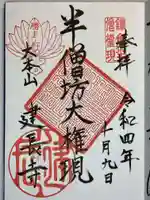 奉拝
令和四年
十一月九日
半僧坊大権現
大本山
建長寺